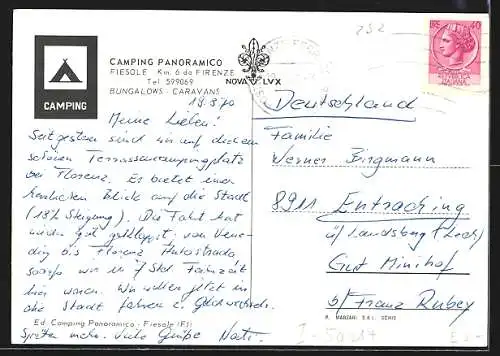 252
CAMPING PANORAMICO
FIESOLE Km. 6 da FIRENZE
Tel. 599069
BUNGALOWS - CARAVANS
CAMPING
NOVA LVX
40
19.8.70
Meine Lieben!
Seit gestern sind wir auf diesem
schönen Terrassencampingplatz
bei Florenz. Es bietet einen
herrlichen Blick auf die Stadt
(18% Steigung). Die Fahrt hat
wieder gut geklappt: von Vene-
dig bis Florenz Autostrada,
sodaß wir in 4 Std. Fahrzeit
hier waren. Wir wollen jetzt in
die Stadt fahren z. Geldwechseln.
Später mehr. Viele Grüße
Ed. Camping Panoramico - Fiesole (FI)
Deutschland
Familie
Werner Bingmann
8911 Entraching
ü/Landsberg (Lech)
Gut Minihof
b/Franz Rubey
R. MANZANI S.R.L. GENIS